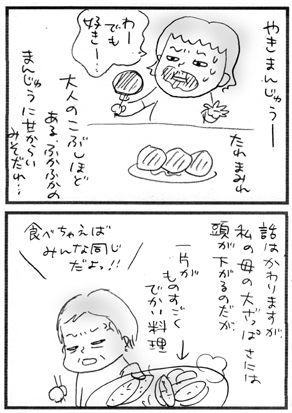 やきまんじゅうー
わー
でも
好きー…
たれまみれ
大人のこぶしほど
あるぷかぷかの
まんじゅうに甘からい
みそだれ…
話はかわりますが、
私の母の大ざっぱさには
頭が下がるのだが
一片が
ものすごく
でかい料理
食べちゃえば
みんな同じ
だよっ!!